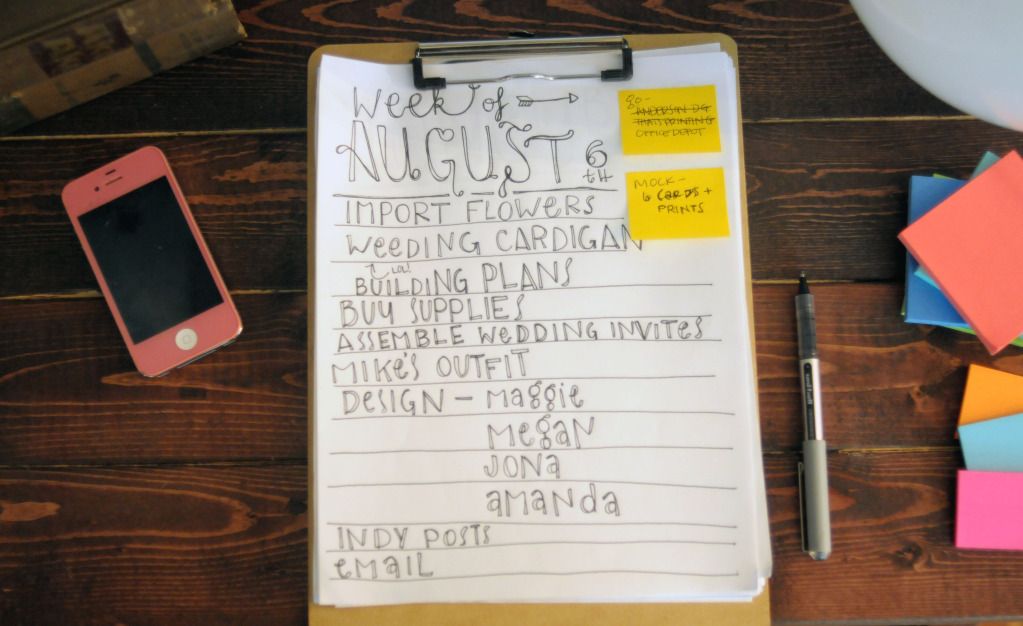 Week of
AUGUST 6TH
IMPORT FLOWERS
WEEDING CARDIGAN
BUILDING PLANS
BUY SUPPLIES
ASSEMBLE WEDDING INVITES
MIKE'S OUTFIT
DESIGN - Maggie
Megan
JONa
aMaNda
INDY POSTS
eMaIL
go-
ANDERSON DG
THATS PRINTING
OFFICE DEPOT
MOCK-
6 CARDS +
PRINTS